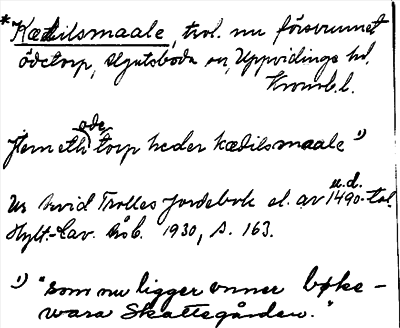 *Kædilsmaale, trol. nu försvunnet
ödetorp, Älgutsboda sn, Uppvidinge hd,
Kronob. l.
Jtem eth ode torp heder kædilsmaale 1)
Ur Arvid Trolles Jordebok el. av 1490-tal. u.d.
Hylt.-Cav. håb. 1930, s. 163.
1) "som nu ligger unner bøke-
wara Skattegården."